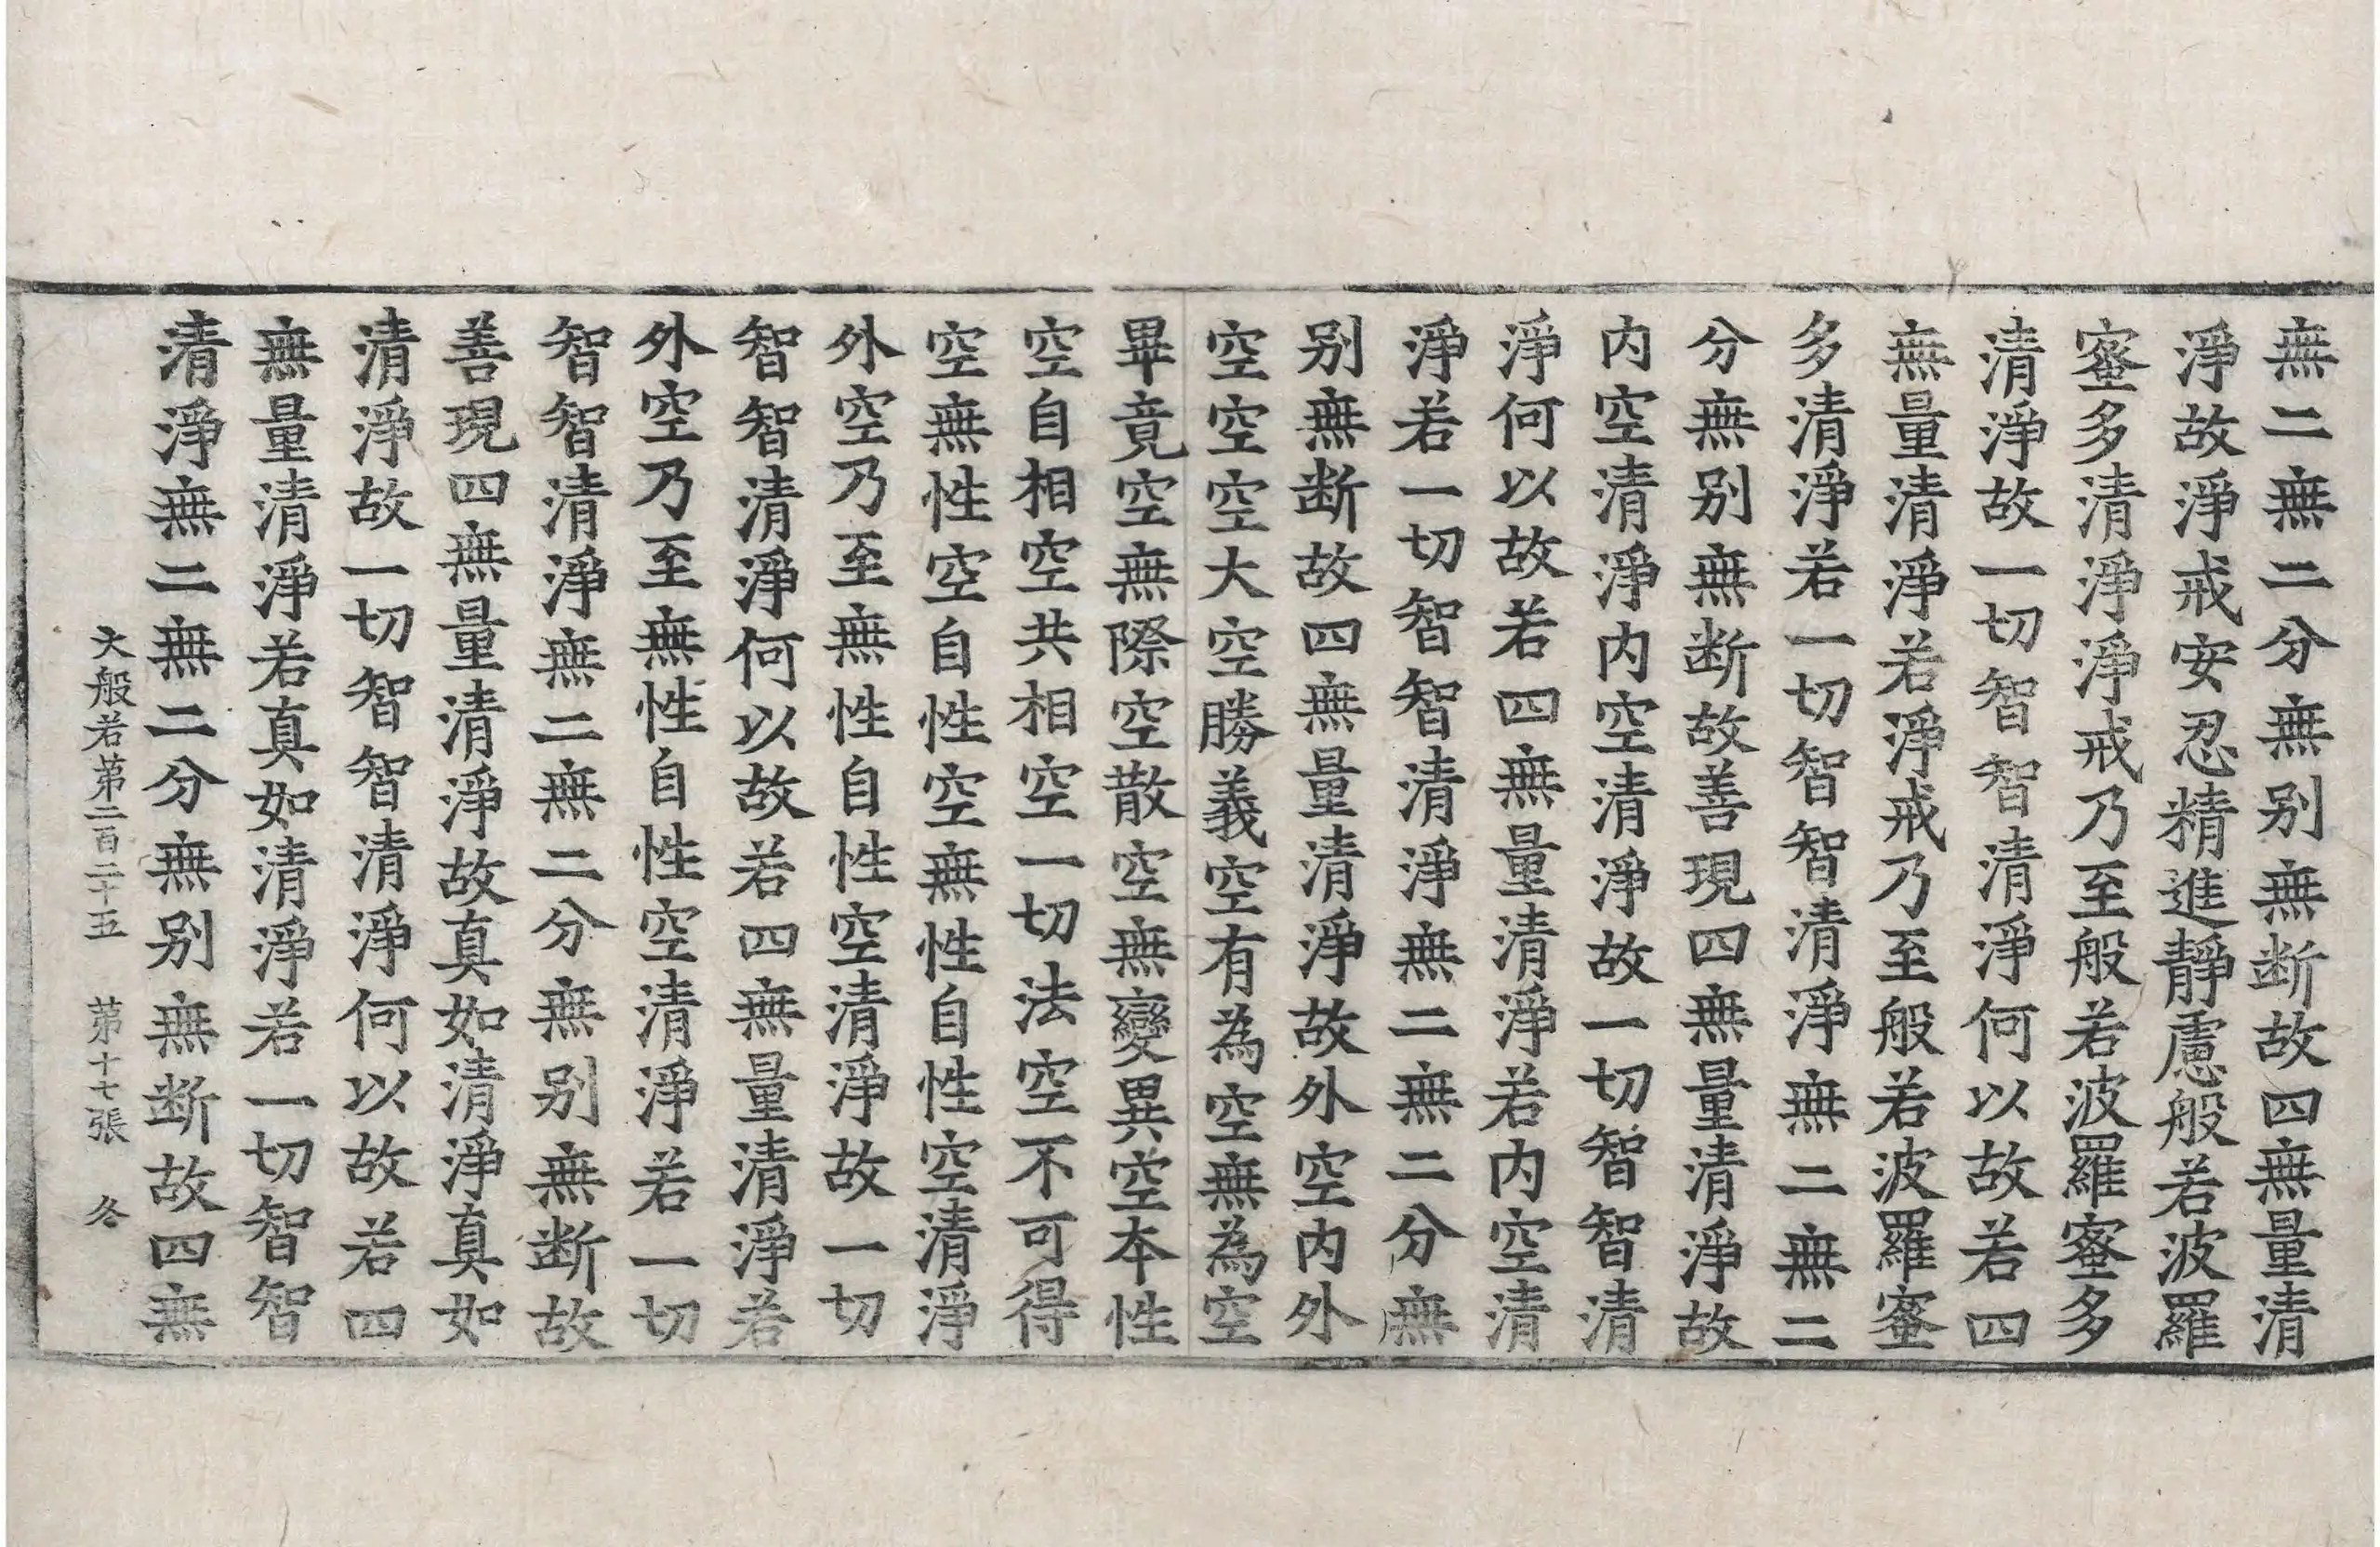 無二無二分無别無断故四無量清
淨故淨戒安忍精進靜慮般若波羅
蜜多清淨淨戒乃至般若波羅蜜多
清淨故一切智智清淨何以故若四
無量清淨若淨戒乃至般若波羅蜜
多清淨若一切智智清淨無二無二
分無别無断故善現四無量清淨故
内空清淨内空清淨故一切智智清
淨何以故若四無量清淨若内空清
淨若一切智智清淨無二無二分無
别無断故四無量清淨故外空内外
空空空大空勝義空有為空無為空
畢竟空無際空散空無變異空本性
空自相空共相空一切法空不可得
空無性空自性空無性自性空清淨
外空乃至無性自性空清淨故一切
智智清淨何以故若四無量清淨若
外空乃至無性自性空清淨若一切
智智清淨無二無二分無别無断故
善現四無量清淨故真如清淨真如
清淨故一切智智清淨何以故若四
無量清淨若真如清淨若一切智智
清淨無二無二分無别無断故四無
大般若第二百二十五 第十七張 冬